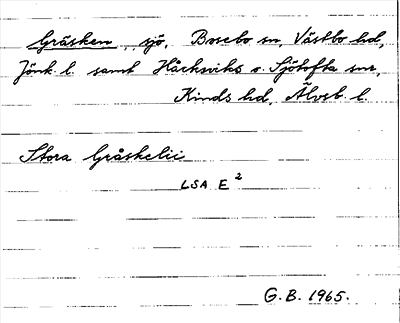 Gräsken, sjö, Bosebo sn, Västbo hd,
Jönk. l. samt Håcksviks o. Sjötofta snr,
Kinds hd, Älvsb. l.
Stora Gråskelii
LSA E²
G.B. 1965.